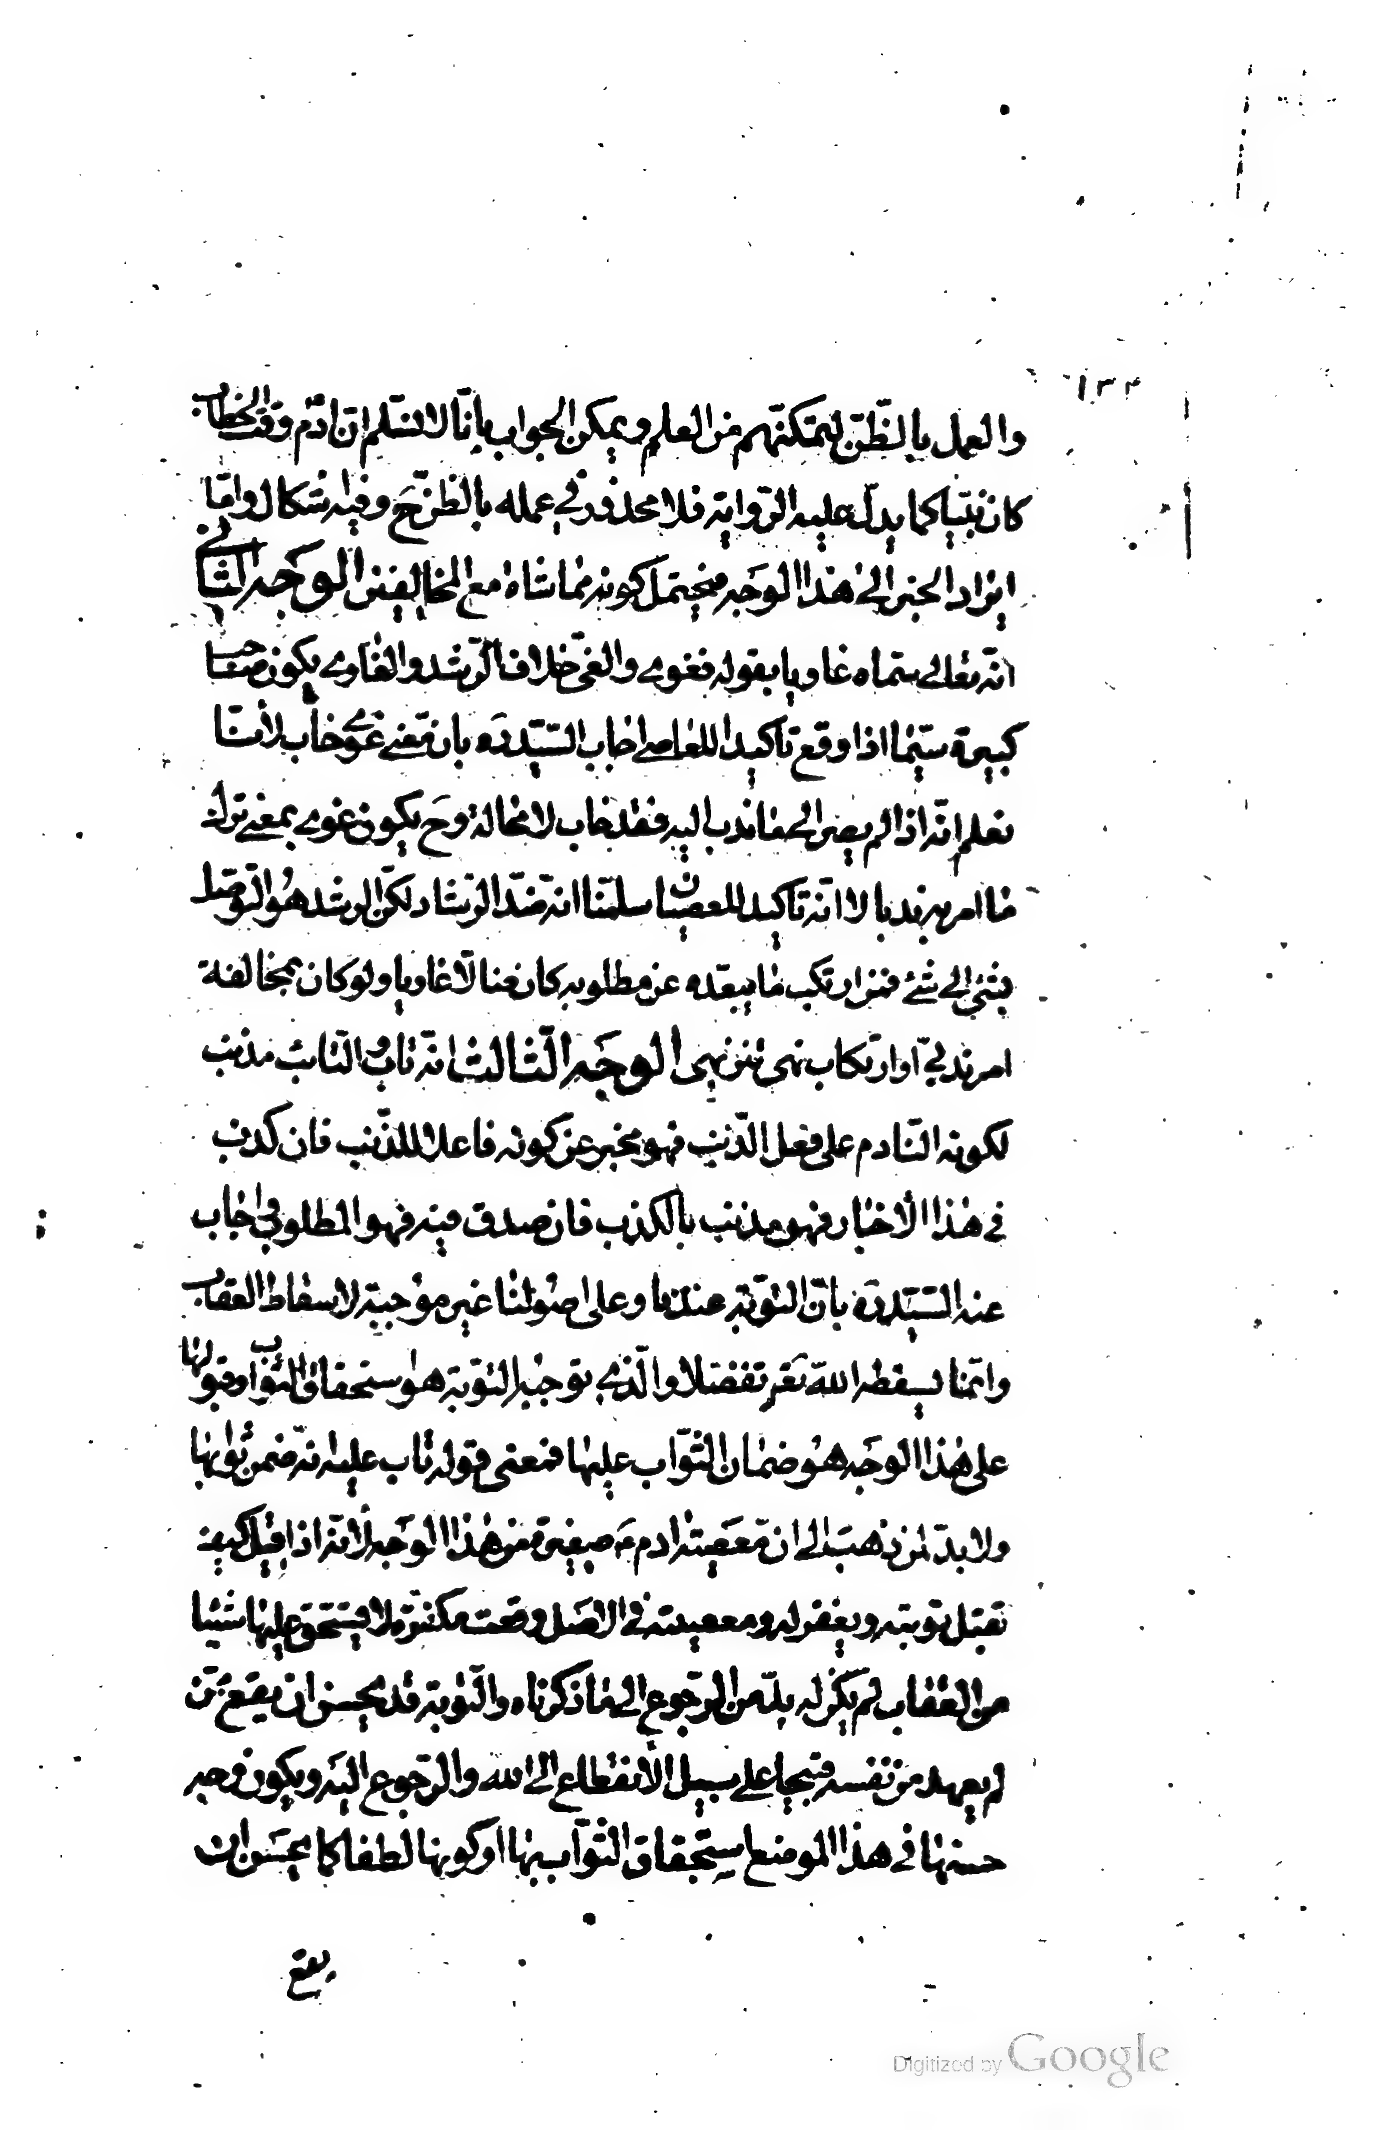 ١٣٤
والعمل بالظنّ لتمكنّهم من العلم ويمكن الجواب بانّا لا نسلم انّ ادم وقت الخطاب
كان نبيّا كما يدلّ عليه الرّواية فلا محذور في عمله بالظنّ ح وفيه اشكال وامّا
ايراد الخبر الى هذا الوجه فيحتمل كونه مماشاة مع المخالفين الوجه الثاني
انّه تعالى سمّاه غاويا بقوله فغوى والغىّ خلاف الرّشد والغاوى يكون صاحب
كبيرة سيّما اذا وقع تأكيدا للعاصي اجاب السّيّد ره بان معنى غوى خاب لأنّنا
نعلم انّه اذا لم يصر الى ما ندب اليه فقد خاب لا محالة وح يكون غوى بمعنى ترك
ما امر به ندبا لا انّه تأكيد للعصيان سلمّنا انه ضدّ الرّشاد لكن الرشد هو التوصّل
بشئ الى شئ فمن ارتكب ما يبعّده عن مطلوبه كان ضالّا غاويا ولو كان بمخالفة
امر ندبيّ او ارتكاب نهى تنزيهى الوجه الثالث انّه تاب والتّائب مذنب
لكونه النّادم على فعل الذّنب فهو مخبر عن كونه فاعلا للذّنب فان كذب
في هذا الأخبار فهو مذنب بالكذب فان صدق فيه فهو المطلوب اجاب
عنه السّيّد ره بانّ التوبة عندنا وعلى اصولنا غير موجبة لاسقاط العقاب
وانّما يسقطه الله تع تفضّلا والّذى توجبه التوبة هو استحقاق الثواب وقبولها
على هذا الوجه هو ضمان الثّواب عليها فمعنى قوله تاب عليه انّه ضمن ثوابها
ولا بدّ لمن ذهب الى ان معصية ادم ع صغيرة من هذا الوجه لأنّه اذا قيل كيف
تقبل توبته ويغفر له ومعصيته في الاصل وقعت مكفّرة لا يستحق عليها شيئا
من العقاب لم يكن له بدّ من الرّجوع الى ما ذكرناه والتّوبة قد يحسن ان يقع ممّن
لم يعهد من نفسه قبيحا على سبيل الأنقطاع الى الله والرّجوع اليه ويكون وجه
حسنها في هذا الموضع استحقاق الثّواب بها او كونها لطفا كما يحسن ان
يقع
Digitized by Google